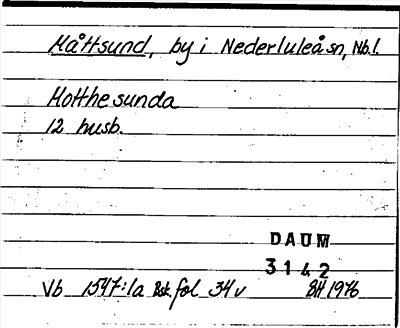 Måttsund, by i Nederluleå sn, Nb.l.
Motthesunda
12 husb.
DAUM
3142
Vb 1547:1a Bsk fol 34v BH 1976